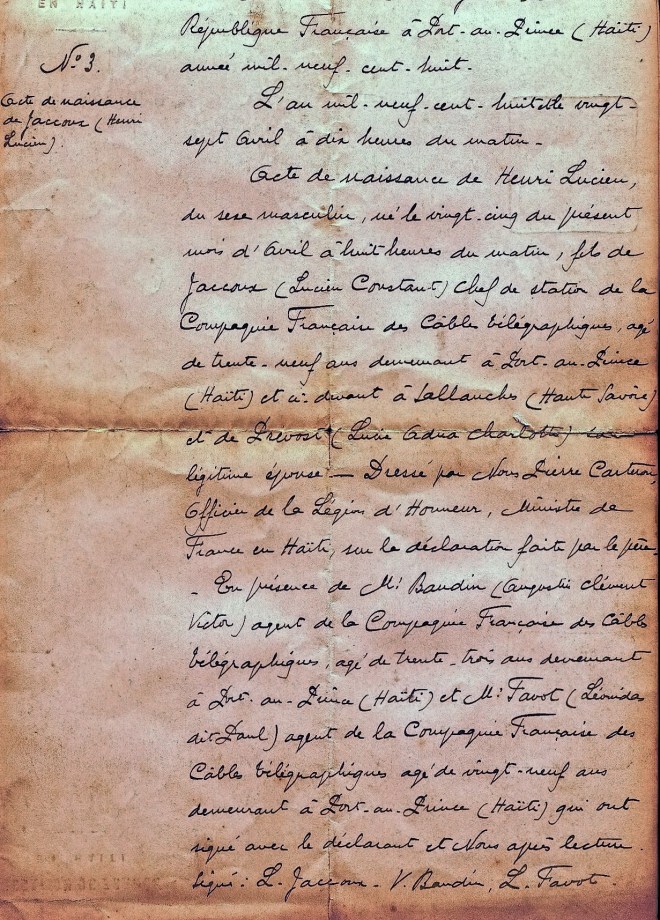 EN HAITI
République Française à Port-au-Prince (Haïti)
année mil-neuf-cent-huit.
N° 3.
Acte de naissance
de Jaccoux (Henri
Lucien).
L'an mil-neuf-cent-huit et le vingt-
sept Avril à dix heures du matin-
Acte de naissance de Henri Lucien,
du sexe masculin, né le vingt-cinq du présent
mois d'Avril à huit heures du matin, fils de
Jaccoux (Lucien Constant) Chef de station de la
Compagnie Française des Câbles télégraphiques, agé
de trente-neuf ans demeurant à Port-au-Prince
(Haïti) et ci-devant à Sallanches (Haute Savoie)
et de Prévost (Lucie Adna Charlotte) son
légitime épouse — Dressé par Nous Pierre Carteron,
Officier de la Légion d'Honneur, Ministre de
France en Haïti, sur la déclaration faite par le père
- En présence de Mr Baudin (Augustin Clément
Victor) agent de la Compagnie Française des Câbles
télégraphiques, agé de trente-trois ans demeurant
à Port-au-Prince (Haïti) et Mr Favot (Léonida
dit Paul) agent de la Compagnie Française des
Câbles télégraphiques agé de vingt-neuf ans
demeurant à Port-au-Prince (Haïti) qui ont
signé avec le déclarant et Nous après lecture.
Signé: L. Jaccoux - V. Baudin, L. Favot.